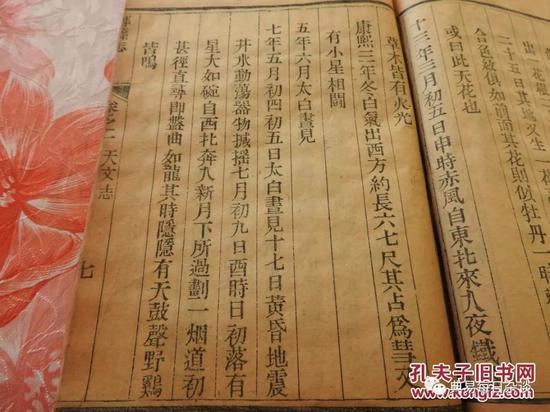 出一花
二十五日其
合色敨俱如前而其花則似牡丹一
或曰此天花也
十三年三月初五日申時赤風自東北來入夜鐵
草木皆有火光
康熙三年冬白氣出西方約長六七尺其占為彗又
有小星相鬬
五年六月太白晝見
七年五月初四初五日太白晝見十七日黃昏地震
井水動蕩器物摵搖七月初九日酉時日初落有
星大如碗自西北奔入新月下所過劃一烟道初
甚徑直尋即盤曲如龍其時隱隱有天鼓聲野鷄
皆鳴
志
卷之一 天文志
七
孔夫子旧书网